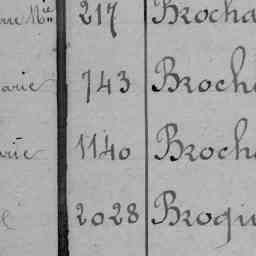 217 Brocha
arie 743 Broch
arie 1140 Broch
2028 Broqu